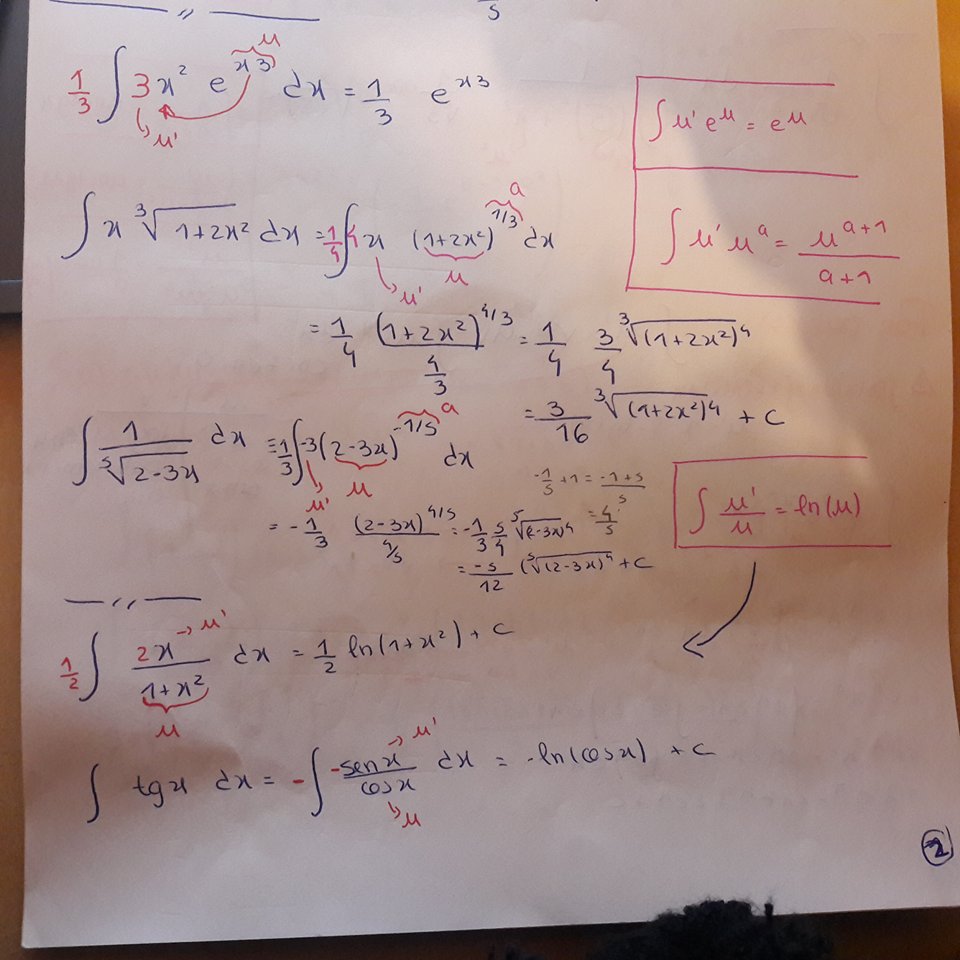 5
— ,, —
1/3 ∫ 3x² e^(x3) dx = 1/3 e^(x3)
μ
μ'
∫ μ' e^μ = e^μ
∫ x ³√(1+2x²) dx = 1/4 ∫ 4x (1+2x²)^(1/3) dx
a
μ' μ
∫ μ' μ^a = μ^(a+1)/(a+1)
= 1/4 (1+2x²)^(4/3)/(4/3) = 1/4 3/4 ³√(1+2x²)^4
= 3/16 ³√(1+2x²)^4 + C
∫ 1/⁵√(2-3x) dx = 1/3 ∫ -3(2-3x)^(-1/5) dx
a
μ' μ
-1/5 + 1 = (-1+5)/5
= 4/5
= -1/3 (2-3x)^(4/5)/(4/5) = -1/3 5/4 ⁵√(2-3x)^4
= -5/12 (⁵√(2-3x)^4 + C
∫ μ'/μ = ln(μ)
— ,, —
1/2 ∫ 2x/(1+x²) dx = 1/2 ln(1+x²) + C
μ'
μ
∫ tgx dx = - ∫ -senx/cosx dx = -ln(cosx) + C
μ'
μ
2